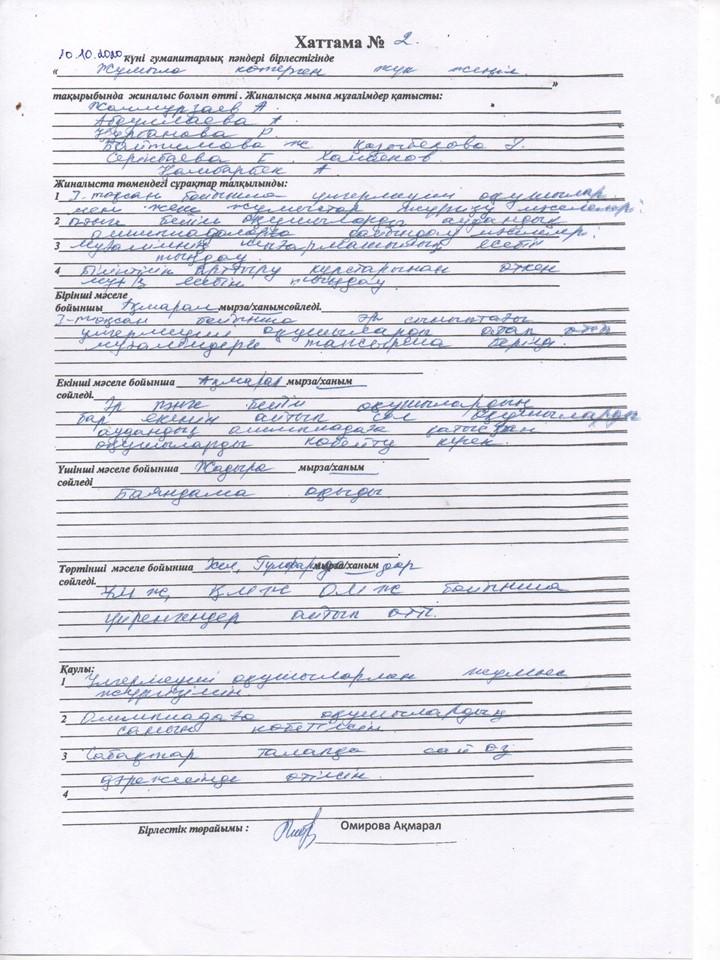 Хаттама № 2.
10.10.2020 күні гуманитарлық пәндері бірлестігінде
« Жұмыла көтерген жүк жеңіл. »
тақырыбында жиналыс болып өтті . Жиналысқа мына мұғалімдер қатысты:
А.
Абдуллаева А.
Курбанова Р.
Ж Қазыбекова У.
Серікбаева Г. Хамбеков.
Қамбарбек А
Жиналыста төмендегі сұрақтар талқылынды:
1 I-тоқсан бойынша үлгермеуші оқушылар
мен жеке жұмыстар жүргізу мәселелері.
2 Пәнге бейім оқушыларды аудандық
олимпиадаларға дайындау мәселелері.
3 Мұғалімнің шығармашылық есебін
тыңдау.
4 Білімін арттыру курстарынан өткен
мұғ. есебін тыңдау
Бірінші мәселе
бойыншы Ақмарал мырза/ханымсөйледі.
I-тоқсан бойынша әр сыныптағы
үлгермеуші оқушыларды атап өтті
мұғалімдерге тапсырма берілді.
Екінші мәселе бойынша Ақмарал мырза/ханым
сөйледі. Әр пәнге бейім оқушылардың
бар екенін айтып сол оқушыларды
аудандық олимпиадаға қатысқан
оқушыларды көбейту керек.
Үшінші мәселе бойынша Жадыра мырза/ханым
сөйледі
Баяндама оқыды
Төртінші мәселе бойынша мырза/ханым дар
сөйледі.
ҚМЖ ОМЖ бойынша
үйренгендер айтып өтті.
Қаулы:
1 Үлгермеуші оқушылармен жұмыс
жүргізілсін
2 Олимпиадаға оқушылардың
саның көбейтілсін.
3 Сабақтар талапқа сай өз
дәрежесінде өтілсін.
4
Бірлестік төрайымы : Омирова Ақмарал